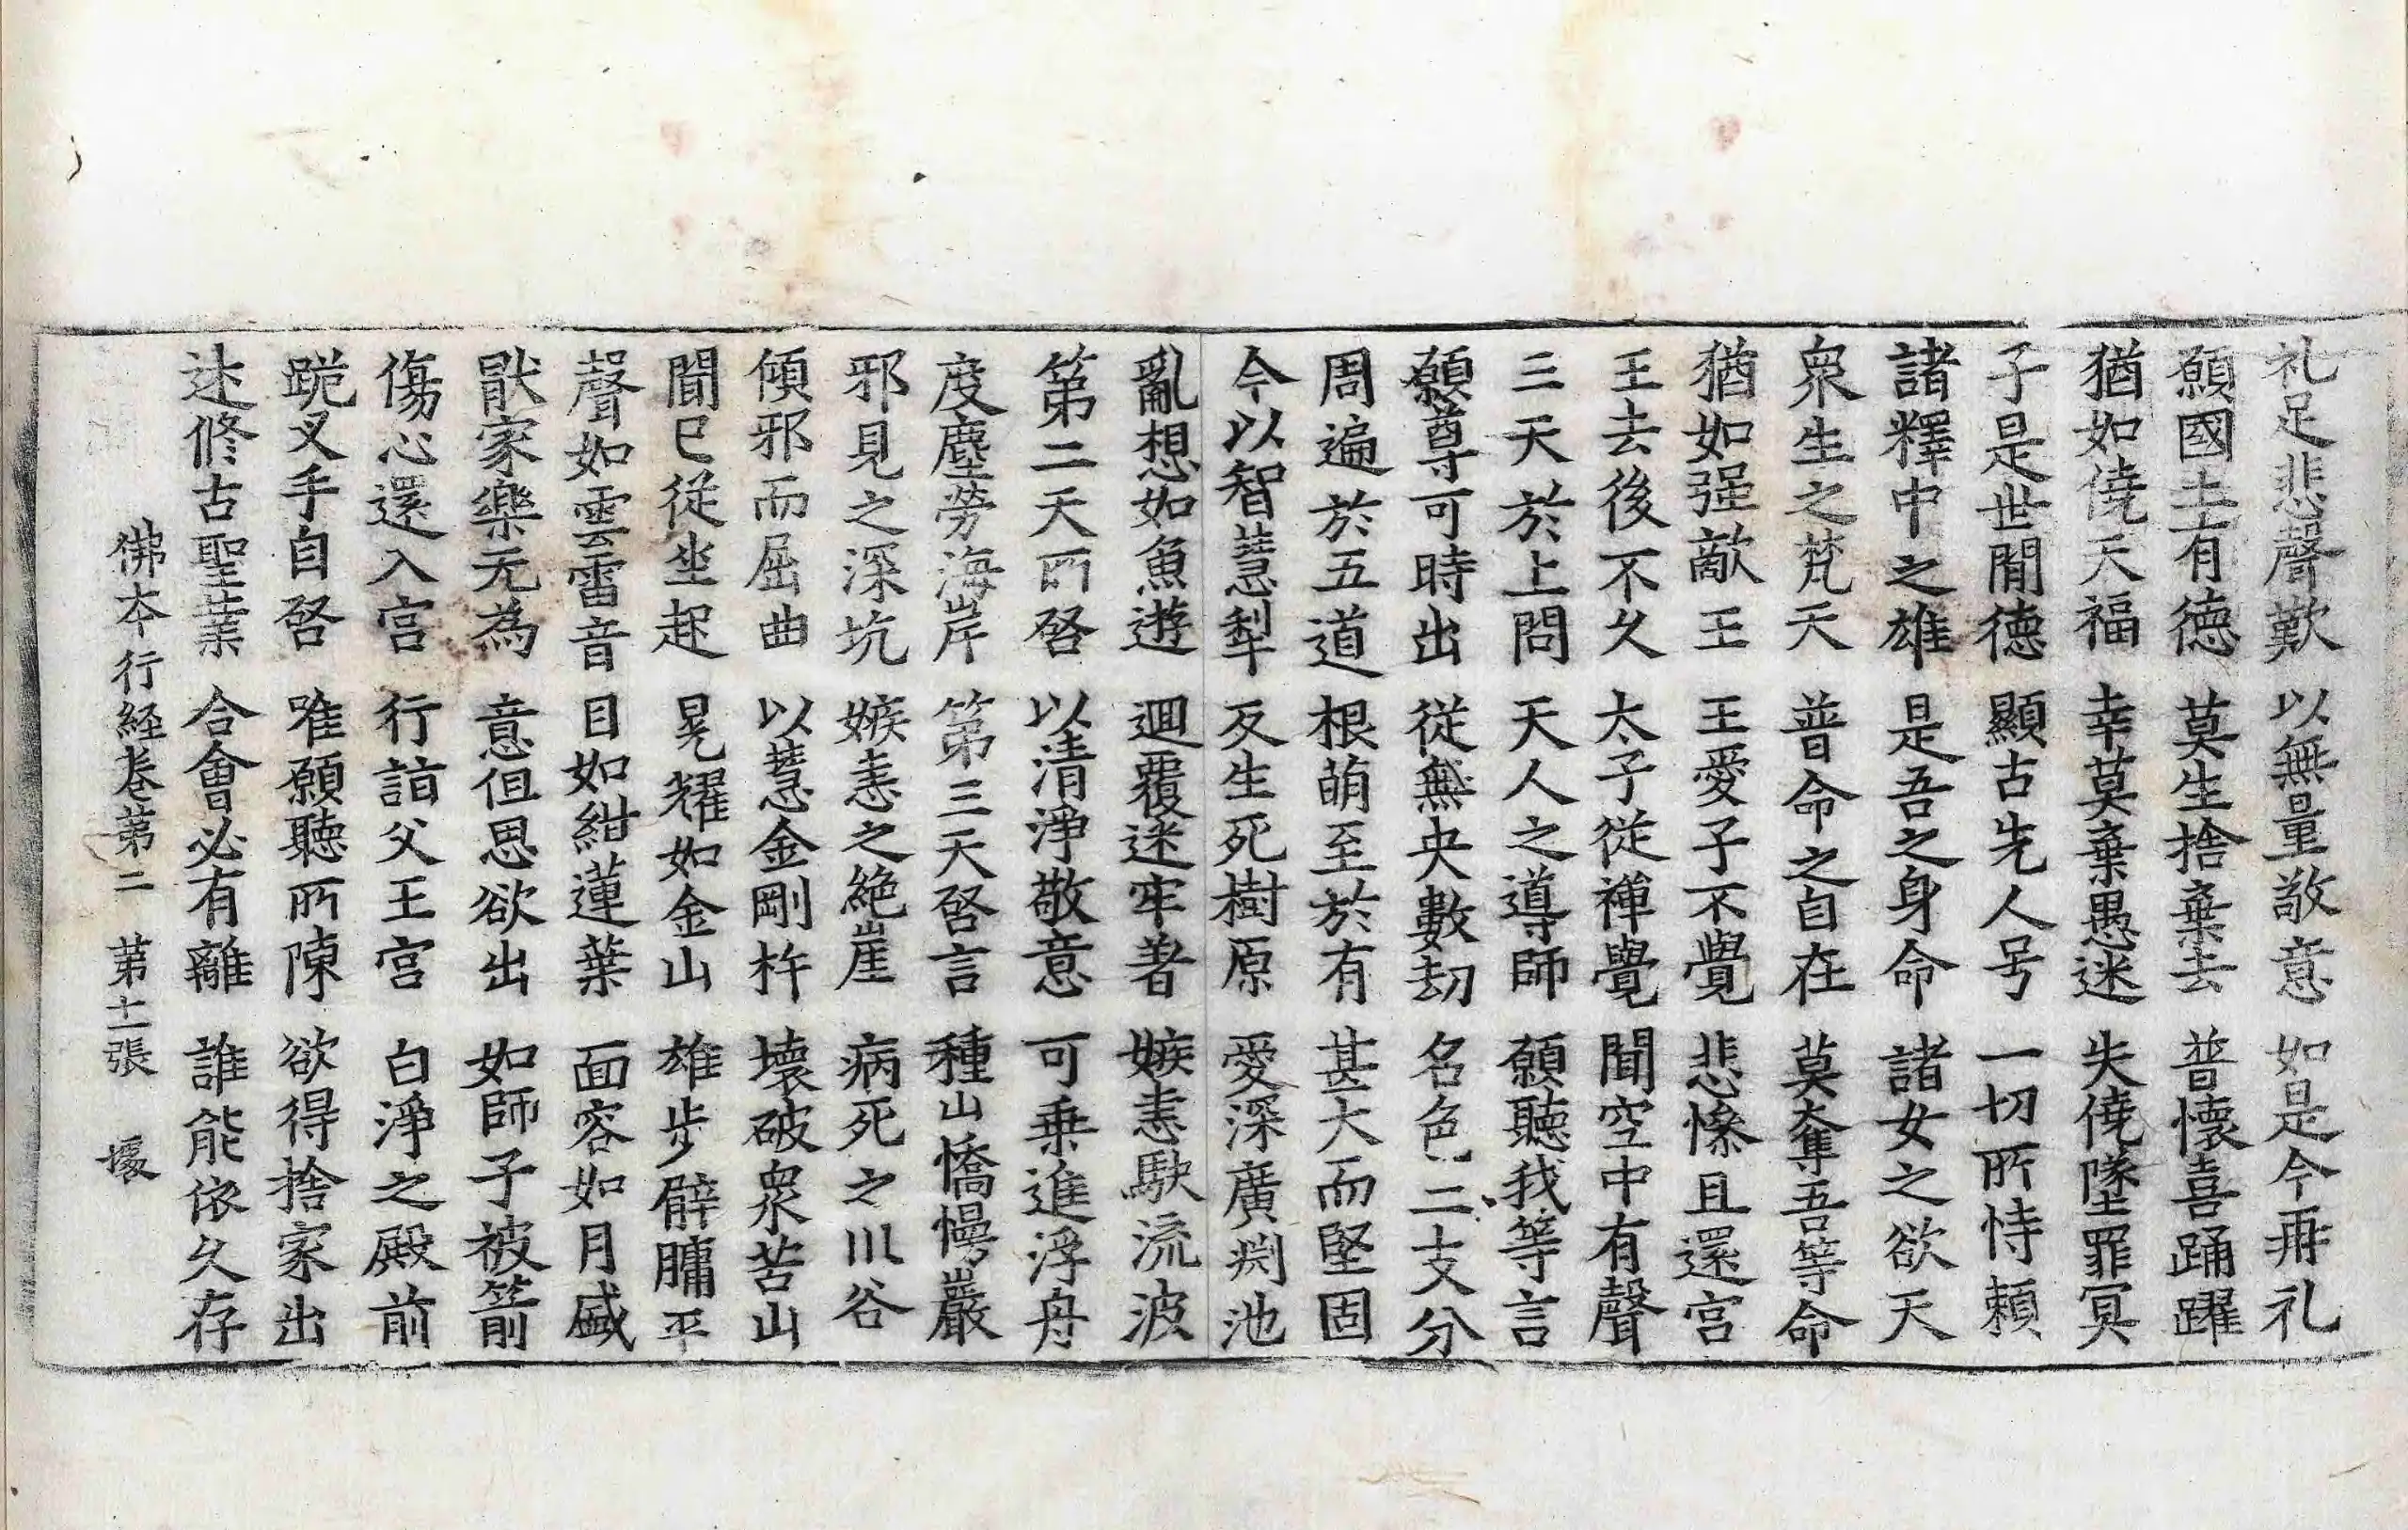 礼足悲聲歎 以無量敬意 如是今再礼
願國土有德 莫生捨棄去 普懷喜踊躍
猶如僥天福 幸莫棄愚迷 失僥墜罪冥
子是世閒德 顯古先人号 一切所恃賴
諸釋中之雄 是吾之身命 諸女之欲天
衆生之梵天 普命之自在 莫奪吾等命
猶如强敵王 王愛子不覺 悲慘且還宮
王去後不久 太子從禪覺 聞空中有聲
三天於上問 天人之導師 願聽我等言
願尊可時出 從無央數劫 名色二支分
周遍於五道 根萌至於有 甚大而堅固
今以智慧犁 反生死樹原 愛深廣渕池
亂想如魚遊 迴覆迷牢著 嫉恚駃流波
第二天所啓 以清淨敬意 可乗進浮舟
度塵勞海岸 第三天啓言 種山憍慢巖
邪見之深坑 嫉恚之絶崖 病死之川谷
傾邪而屈曲 以慧金剛杵 壞破衆苦山
聞已從坐起 晃耀如金山 雄步臂𦟛平
聲如雲雷音 目如紺蓮葉 面容如月盛
猒家樂无為 意但思欲出 如師子被箭
傷心還入宮 行詣父王宮 白淨之殿前
跪叉手自啓 唯願聽所陳 欲得捨家出
迷修古聖業 合會必有離 誰能依久存
佛本行経卷第二 第十一張 㩀